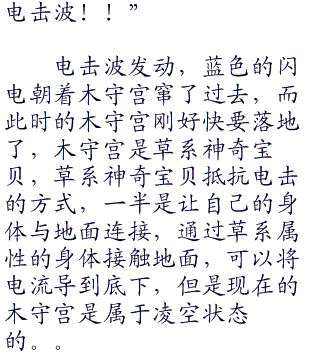 电击波！！”
电击波发动，蓝色的闪
电朝着木守宫窜了过去，而
此时的木守宫刚好快要落地
了，木守宫是草系神奇宝
贝，草系神奇宝贝抵抗电击
的方式，一半是让自己的身
体与地面连接，通过草系属
性的身体接触地面，可以将
电流导到底下，但是现在的
木守宫是属于凌空状态
的。。